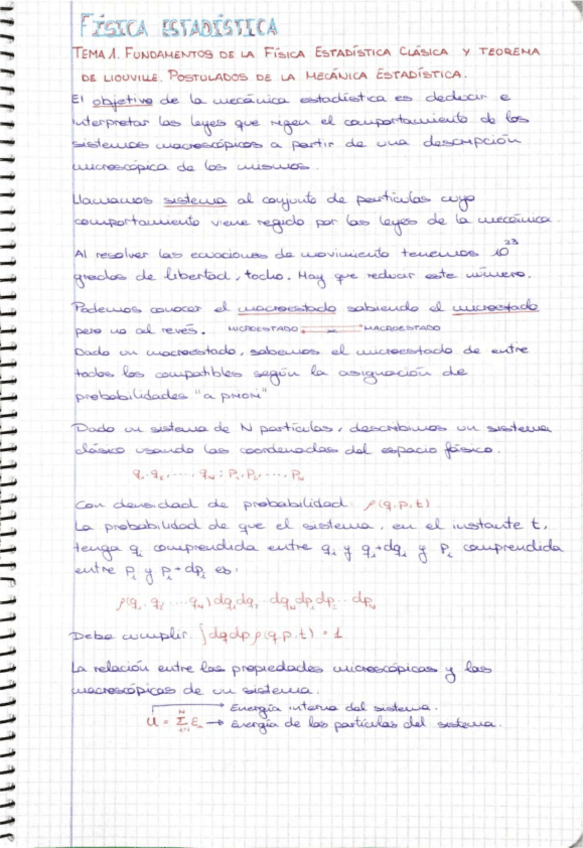 FÍSICA ESTADÍSTICA
TEMA 1. FUNDAMENTOS DE LA FÍSICA ESTADÍSTICA CLÁSICA Y TEOREMA
DE LIOUVILLE. POSTULADOS DE LA MECÁNICA ESTADÍSTICA.
El objetivo de la mecánica estadística es deducir e
interpretar las leyes que rigen el comportamiento de los
sistemas macroscópicos a partir de una descripción
microscópica de los mismos.
Llamamos sistema al conjunto de partículas cuyo
comportamiento viene regido por las leyes de la mecánica.
Al resolver las ecuaciones de movimiento tenemos 10^23
grados de libertad, tocho. Hay que reducir este número.
Podemos conocer el macroestado sabiendo el microestado
pero no al revés. MICROESTADO MACROESTADO
Dado un macroestado, sabemos el microestado de entre
todos los compatibles según la asignación de
probabilidades "a priori"
Dado un sistema de N partículas, describimos un sistema
clásico usando las coordenadas del espacio fásico.
q₁, q₂, ..., qN; P₁, P₂, ..., PN
Con densidad de probabilidad ρ(q,p,t)
La probabilidad de que el sistema, en el instante t,
tenga q₁ comprendida entre q₁ y q₁+dq₁ y P₁ comprendida
entre P₁ y P₁+dp₁ es:
ρ(q₁, q₂ ... qN) dq₁dq₂ ... dqN dp₁dp₂ ... dpN
Debe cumplir: ∫dqdp ρ(q,p,t) = 1
La relación entre las propiedades microscópicas y las
macroscópicas de un sistema.
→ Energía interna del sistema.
U = Σ E → Energía de las partículas del sistema.